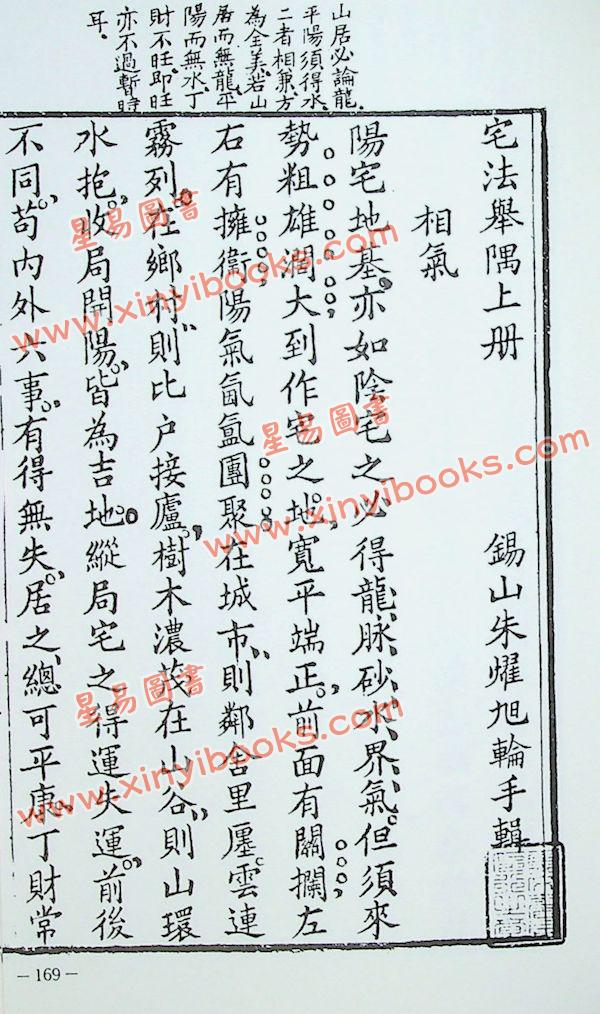 山居必論龍
平陽須得水
二者相兼方
為全美若山
居而無龍平
陽而無水丁
財不旺即旺
亦不過暫時
耳。
宅法舉隅上册 錫山朱燿旭輪手輯
相氣
陽宅地基亦如陰宅之必得龍脉砂水界氣但須來
勢粗雄濶大到作宅之地寬平端正前面有關攔左
右有擁衞陽氣氤氳團聚在城市則鄰舍里廛雲連
霧列在鄉村則比户接廬樹木濃茂在山谷則山環
水抱收局開陽皆為吉地縱局宅之得運失運前後
不同茍內外六事有得無失居之總可平康丁財常
星易圖書
www.xinyibooks.com
星易圖書
www.xinyibooks.com
星易圖書
www.xinyibooks.com
－169－